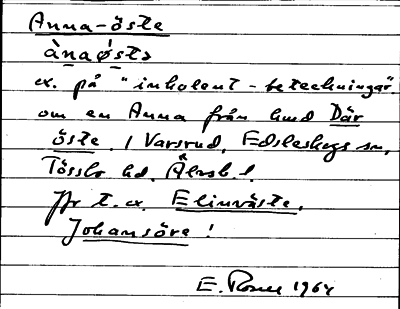 Anna-öste
ànaø̀stə
ex. på "inholent-beteckningar"
om en Anna från hmd Där
öste. / Varsrud, Edsleskogs sn,
Tössbo hd. Älvsb. l.
Jfr t. ex. Elinväste,
Johansöre!
E. Rosell 1964